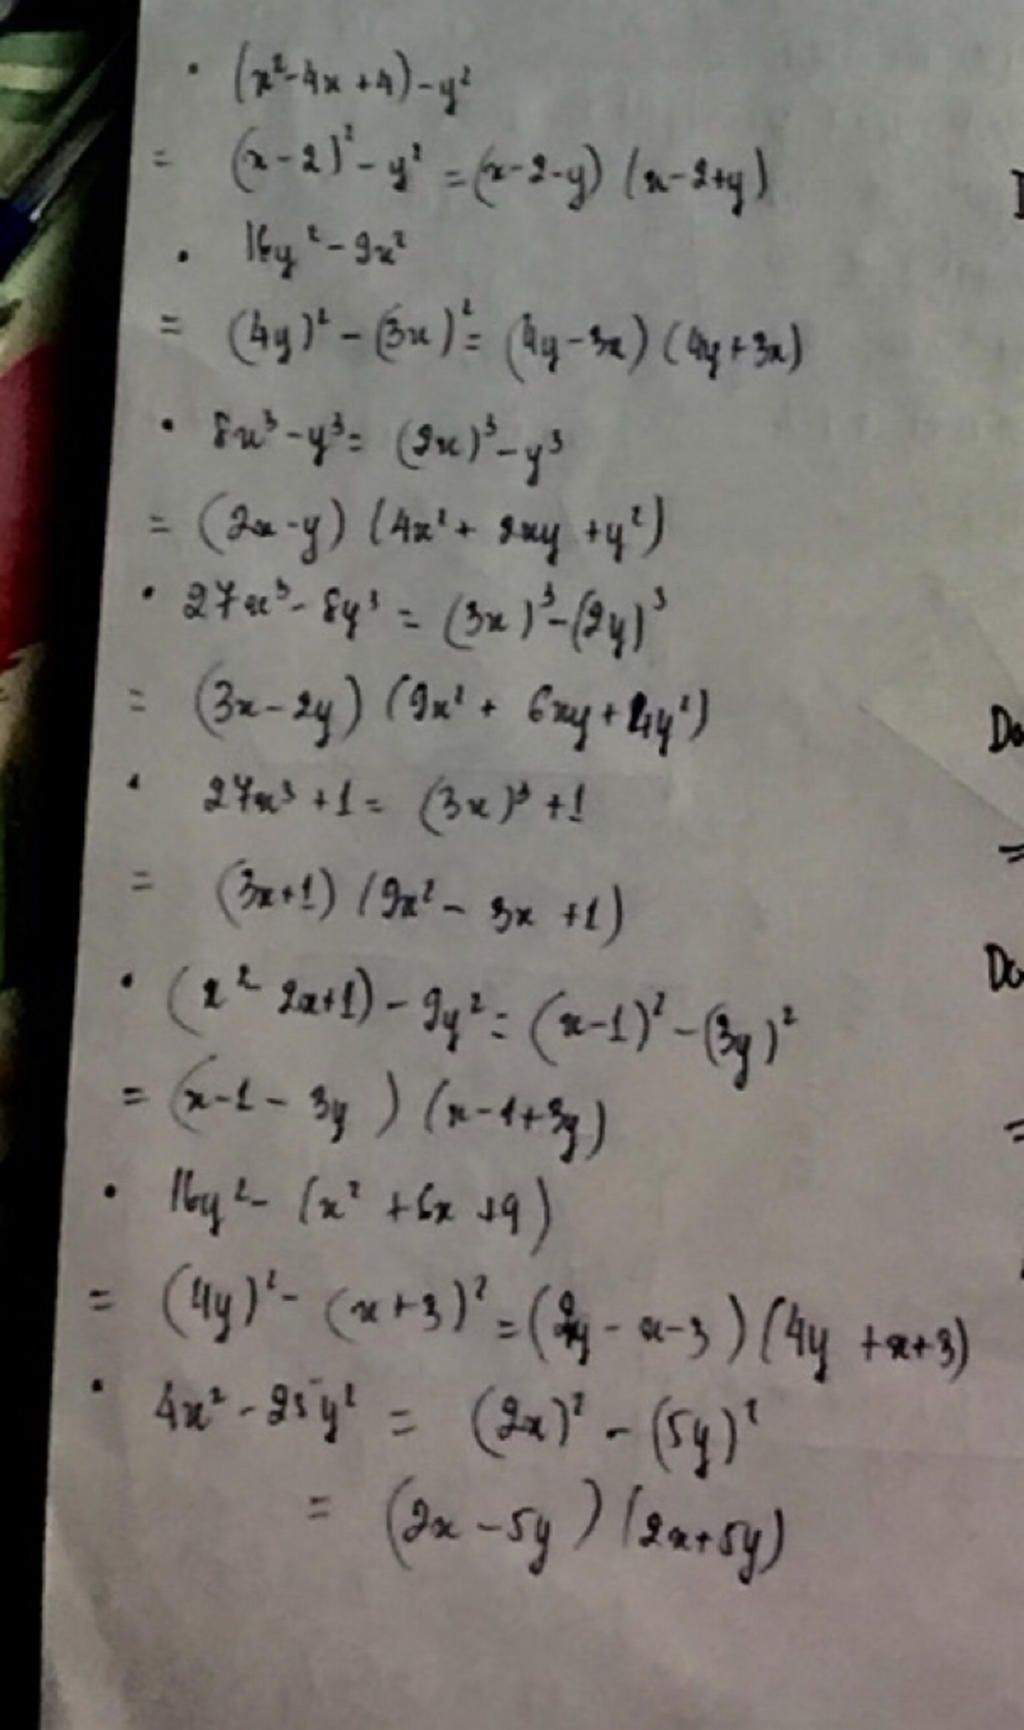 • (x²-4x+4)-y²
= (x-2)² - y² = (x-2-y) (x-2+y)
• 16y² - 9x²
= (4y)² - (3x)² = (4y-3x) (4y+3x)
• 8x³ - y³ = (2x)³ - y³
= (2x-y) (4x² + 2xy + y²)
• 27x³ - 8y³ = (3x)³ - (2y)³
= (3x-2y) (9x² + 6xy + 4y²)
• 27x³ + 1 = (3x)³ + 1
= (3x+1) (9x² - 3x + 1)
• (x² - 2x+1) - 9y² = (x-1)² - (3y)²
= (x-1-3y) (x-1+3y)
• 16y² - (x² + 6x + 9)
= (4y)² - (x+3)² = ( y - x-3) (4y + x+3)
• 4x² - 25y² = (2x)² - (5y)²
= (2x-5y) (2x+5y)
Do
=
Do
=